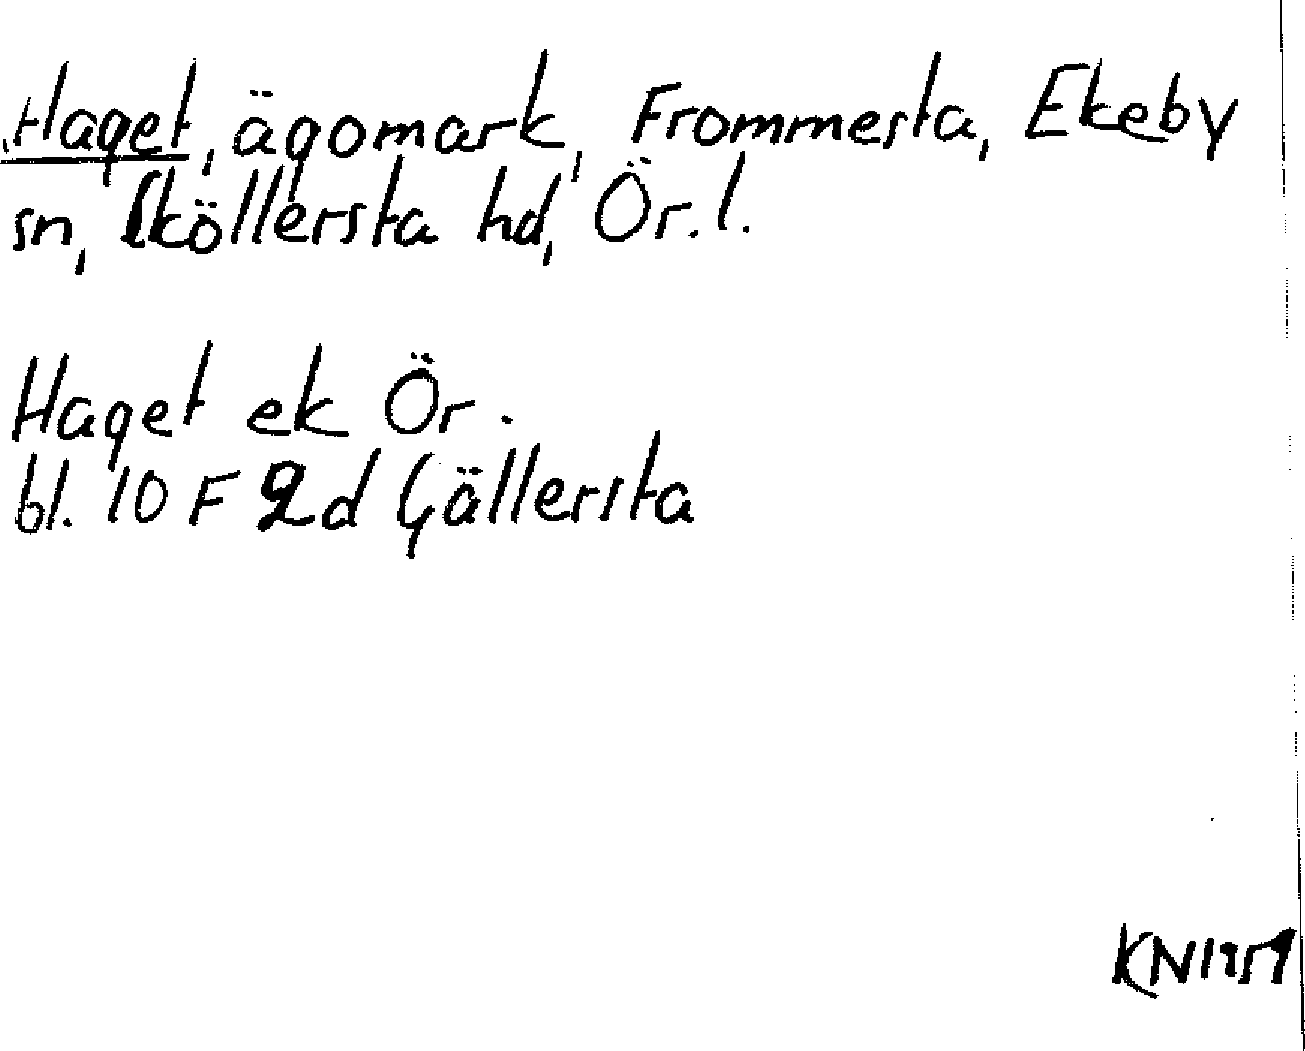 Haget, ägomark, Frommesta, Ekeby
sn, Sköllersta hd, Ör. l.
Haget ek Ör.
bl. 10 F 2d Gällersta
KN